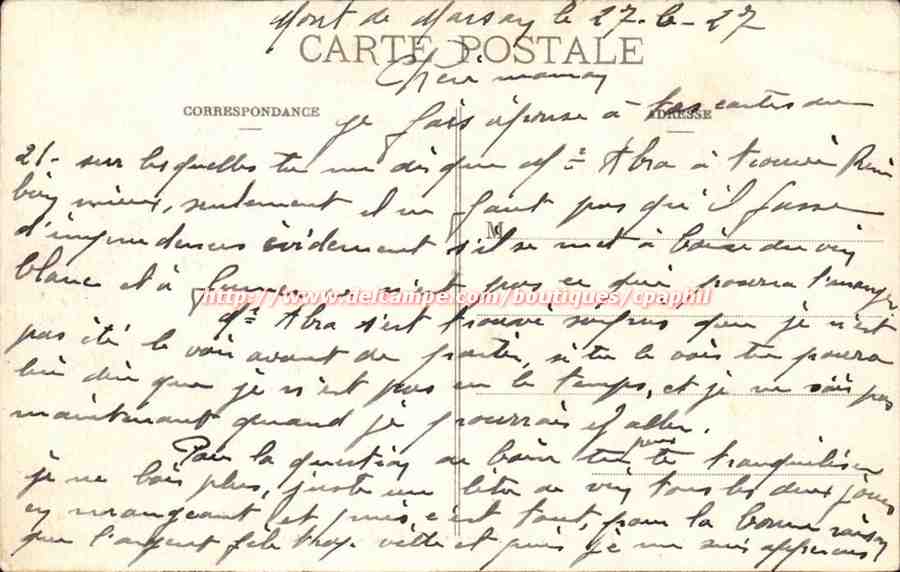 Mont de Marsan le 27-6-27
CARTE POSTALE
Chère maman
CORRESPONDANCE
ADRESSE
je fais réponse à tes cartes du
21- sur lesquelles tu me dis que Dr Abra à trouvé René
bien mieux, seulement il ne faut pas qu'il fasse
M
d'imprudences évidement s'il se met à boire du vin
blanc et à fumer ce n'est pas ce qui pourra l'arranger
http://www.delcampe.com/boutiques/cpaphil
Dr Abra s'est trouvé surpris que je n'est
pas été le voir avant de partir, si tu le vois tu pourra
lui dire que je n'est pas eu le temps, et je ne sais pas
maintenant quand je pourrais y aller.
Pour la question de boire tu peus te tranquiliser
je ne bois plus, juste un litre de vin tous les deux jours
en mangeant et puis c'est tout, pour la bonne raison
que l'argent file trop vite et puis je me suis apperçus